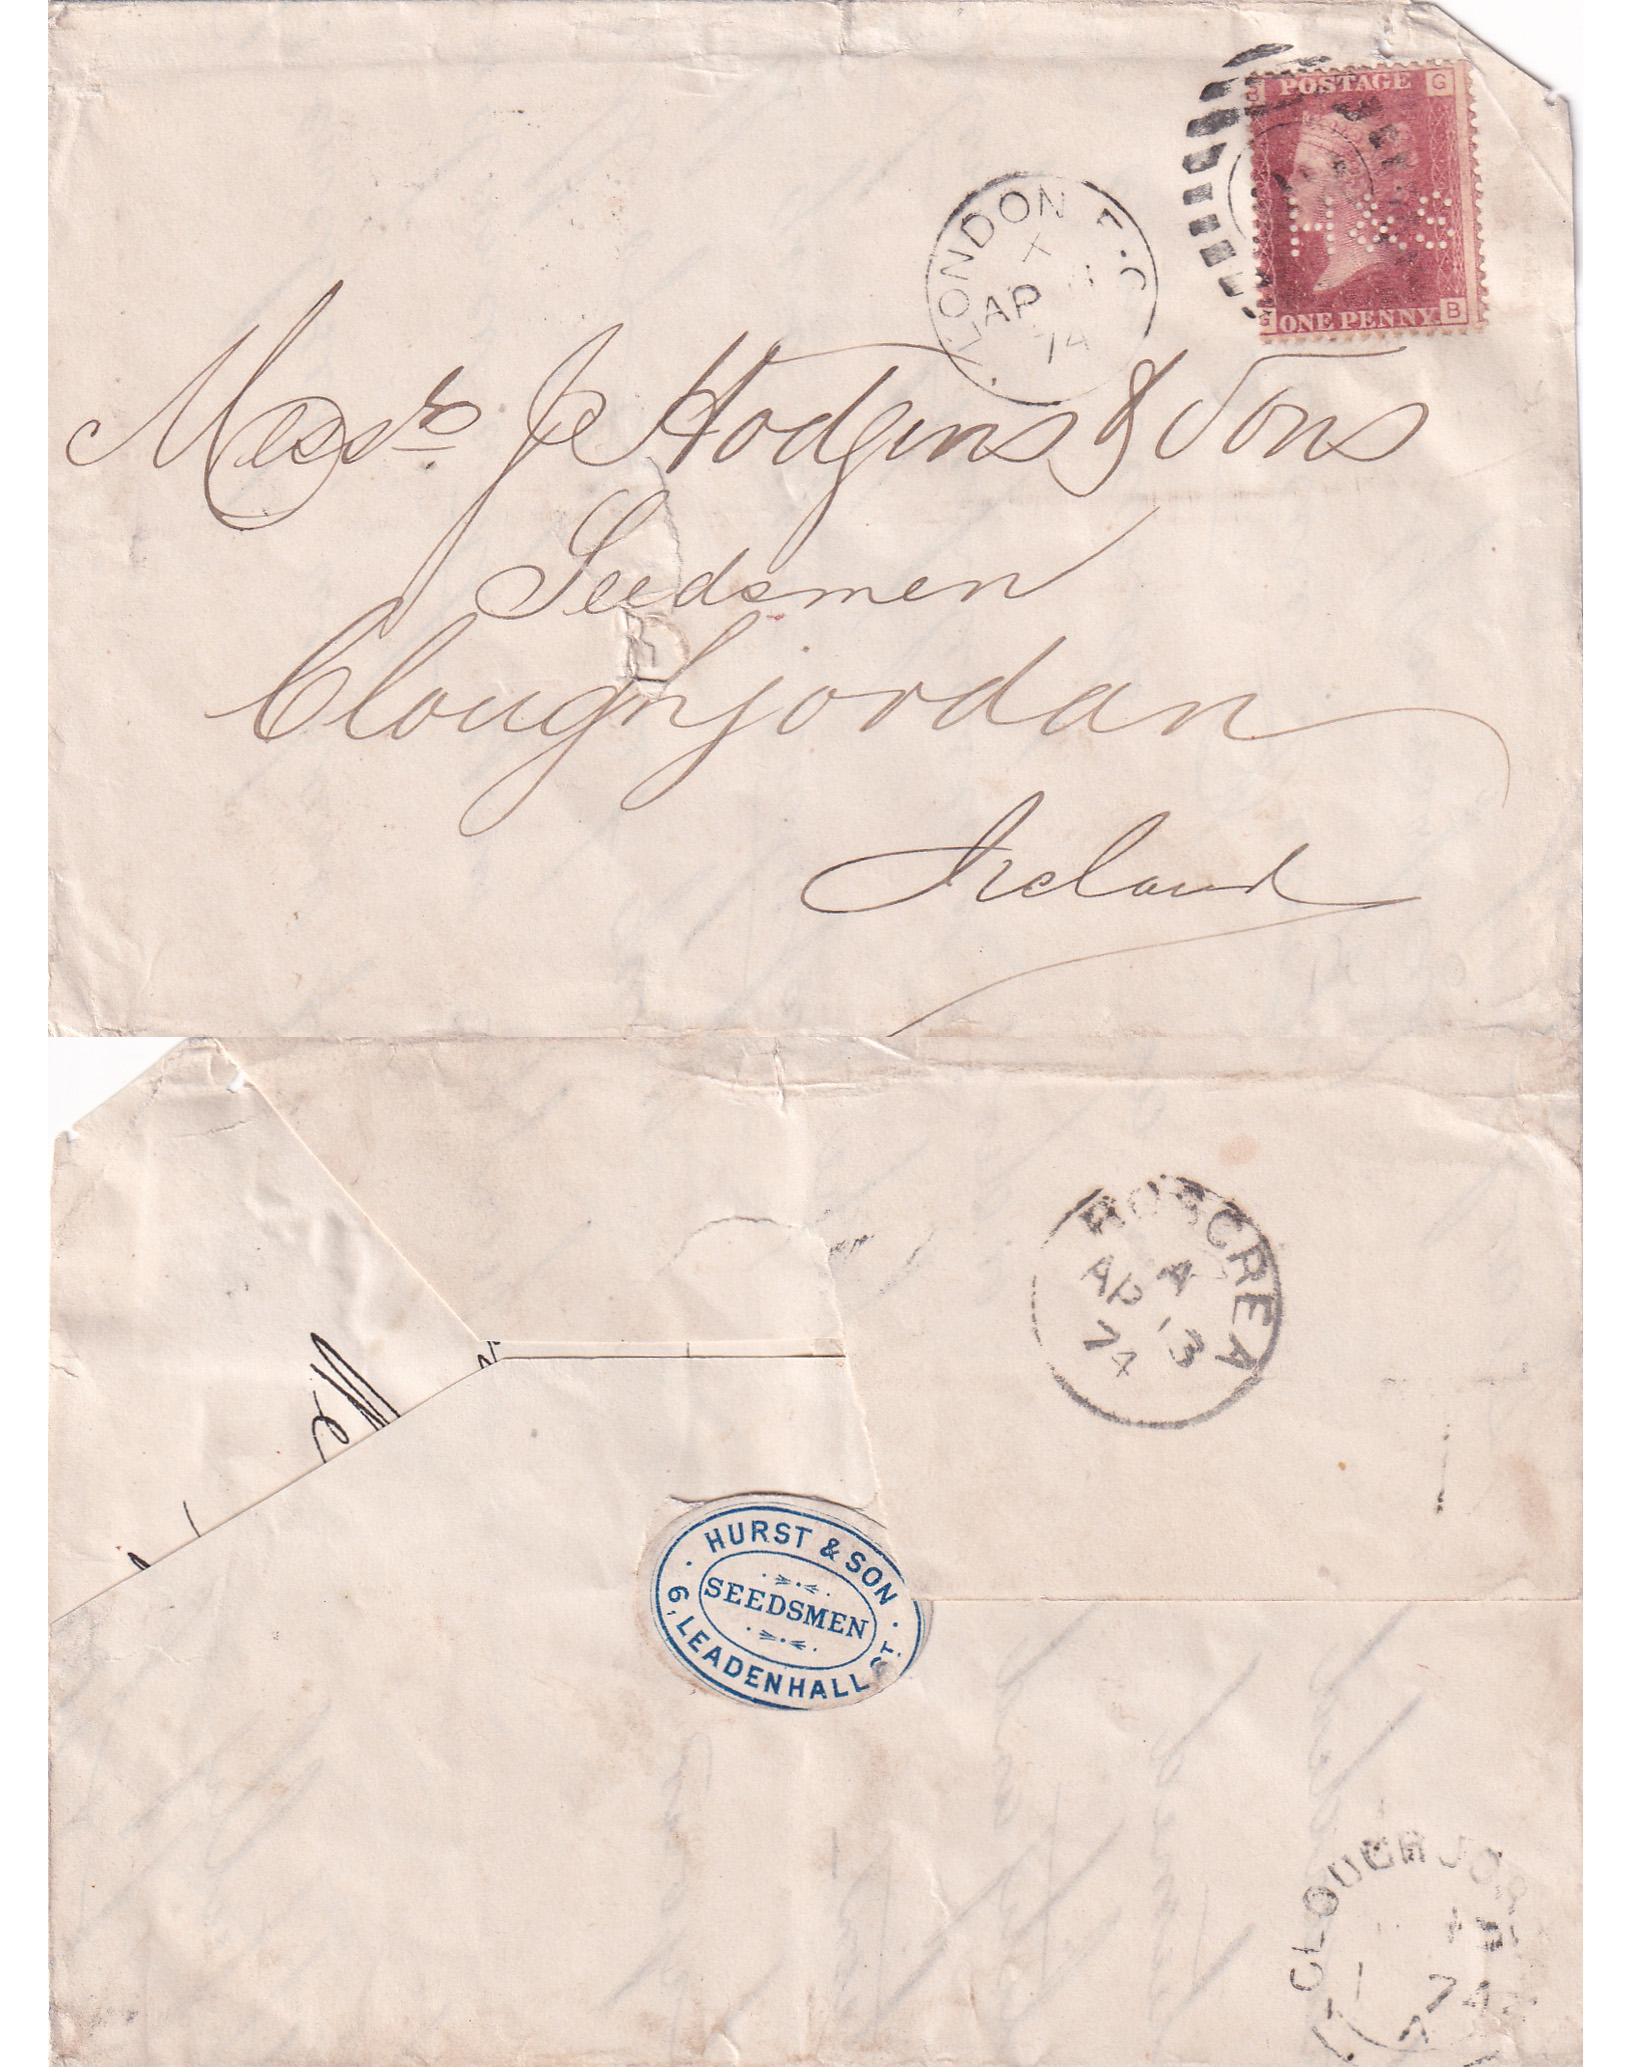 POSTAGE
G
H&S
G ONE PENNY B
LONDON E.C
X
AP
74
Messrs J Hodgins & Sons
Seedsmen
Cloughjordan
Ireland
ROSCREA
A
AP 13
74
HURST & SON
SEEDSMEN
6, LEADENHALL ST
CLOUGHJOR
74